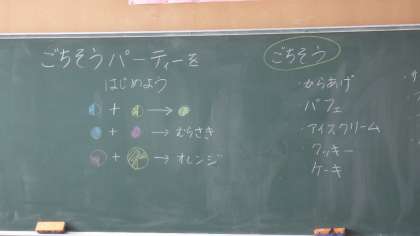 ごちそうパーティーを
はじめよう
+ →
+ → むらさき
+ → オレンジ
ごちそう
・からあげ
パフェ
・アイスクリーム
クッキー
ケーキ